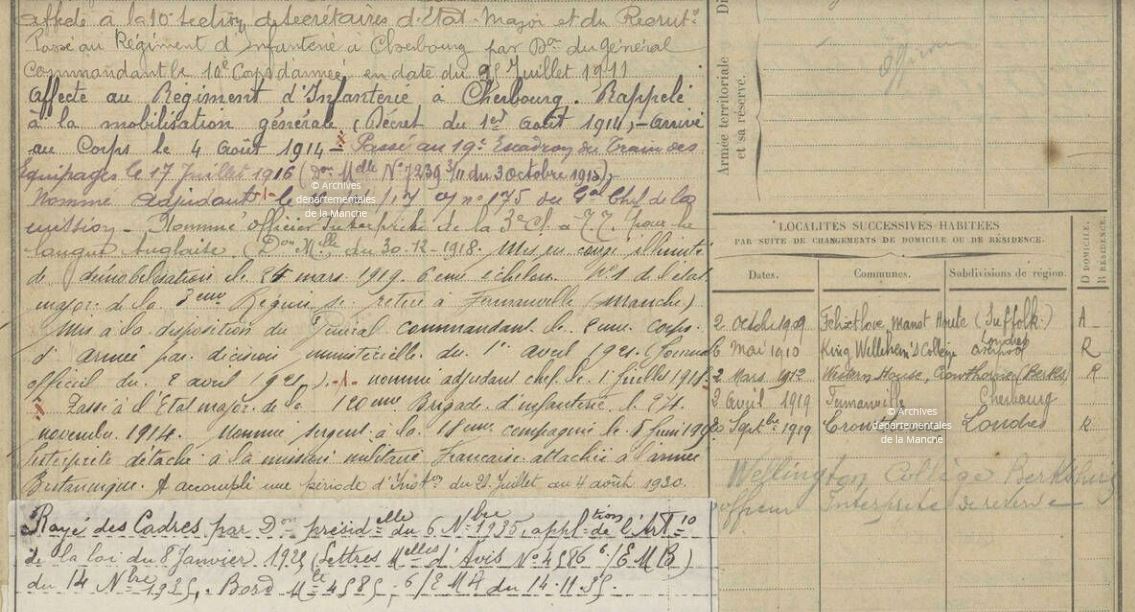 affecté à la 10e Section de Secrétaires d'Etat Major et du Recrutt
Passé au Régiment d'Infanterie de Cherbourg par Don du Général
Commandant le 10e Corps d'armée en date du Juillet 1911
Affecté au Régiment d'Infanterie à Cherbourg. Rappelé
à la mobilisation générale (Décret du 1er Août 1914) - Arrivé
au Corps le 4 Août 1914 - Passé au 19e Escadron du Train des
Equipages le 17 Juillet 1916 (Don Melle No 7239 3/11 du 3 Octobre 1915),
Nommé Adjudant le no 175 du Gal Chef de la
mission - Nommé officier Interprète de la 3e cl. à T.T. pour la
langue Anglaise (Don Mlle du 30-12-1918. Mis en congé illimité
de démobilisation le mars 1919 6eme échelon. de l'état
major de la 3eme Région se retire à Fermanville (Manche)
Mis à la disposition du Général commandant le corps
d'armée par décision ministérielle du 1er avril 1921 (Journal
officiel du 2 avril 1921). -1- nommé adjudant chef le 1 Juillet 1918
x Passé à l'Etat major de la 120eme Brigade d'infanterie le
novembre 1914. Nommé sergent à la 18eme compagnie le 5 Juin
Interprète détaché à la mission militaire Française attachée à l'armée
Britannique. A accompli une période d'Inston du 21 Juillet au 4 août 1930.
Rayé des Cadres par Don présidelle du 6 Nbre 1935, appltion de l'Art 10
de la loi du 8 Janvier 1925 (Lettres Melles d'Avis No 4586 6/EMB)
du 14 Nbre 1935, Bord Mle 4585 6/EMA du 14.11.35.
Armée territoriale
et sa réserve.
LOCALITÉS SUCCESSIVES HABITÉES
PAR SUITE DE CHANGEMENTS DE DOMICILE OU DE RÉSIDENCE.
Dates. Communes. Subdivisions de région. D DOMICILE. R RÉSIDENCE.
2 Octobre 1909 Felixtlove Manot Houte (Suffolk) Londres A
6 Mai 1910 King Wellihem's College Liverpool R
2 Mars 1912 Western House, Crowthorne (Berks) R
2 Avril 1919 Fermanville Cherbourg
Septbre 1919 Londres R
Wellington Collège Berkshire
officier Interprète de réserve
© Archives
départementales
de la Manche
© Archives
départementales
de la Manche